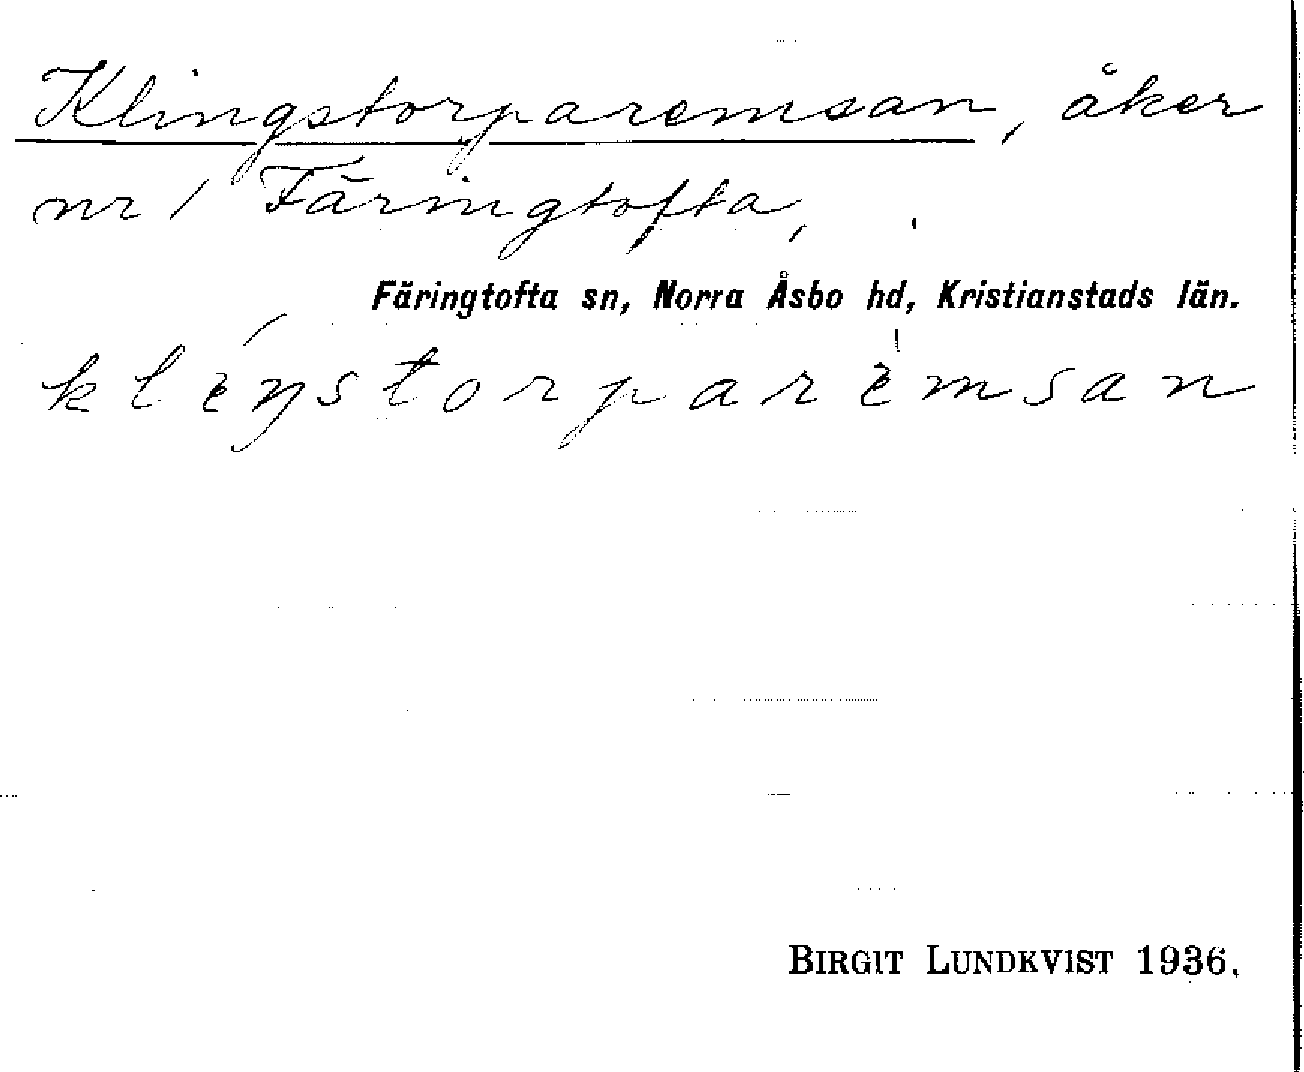 Klingstorparemsan, åker
nr 1 Färingtofta,
Färingtofta sn, Norra Åsbo hd, Kristianstads län.
kléŋstorparèmsan
BIRGIT LUNDKVIST 1936.